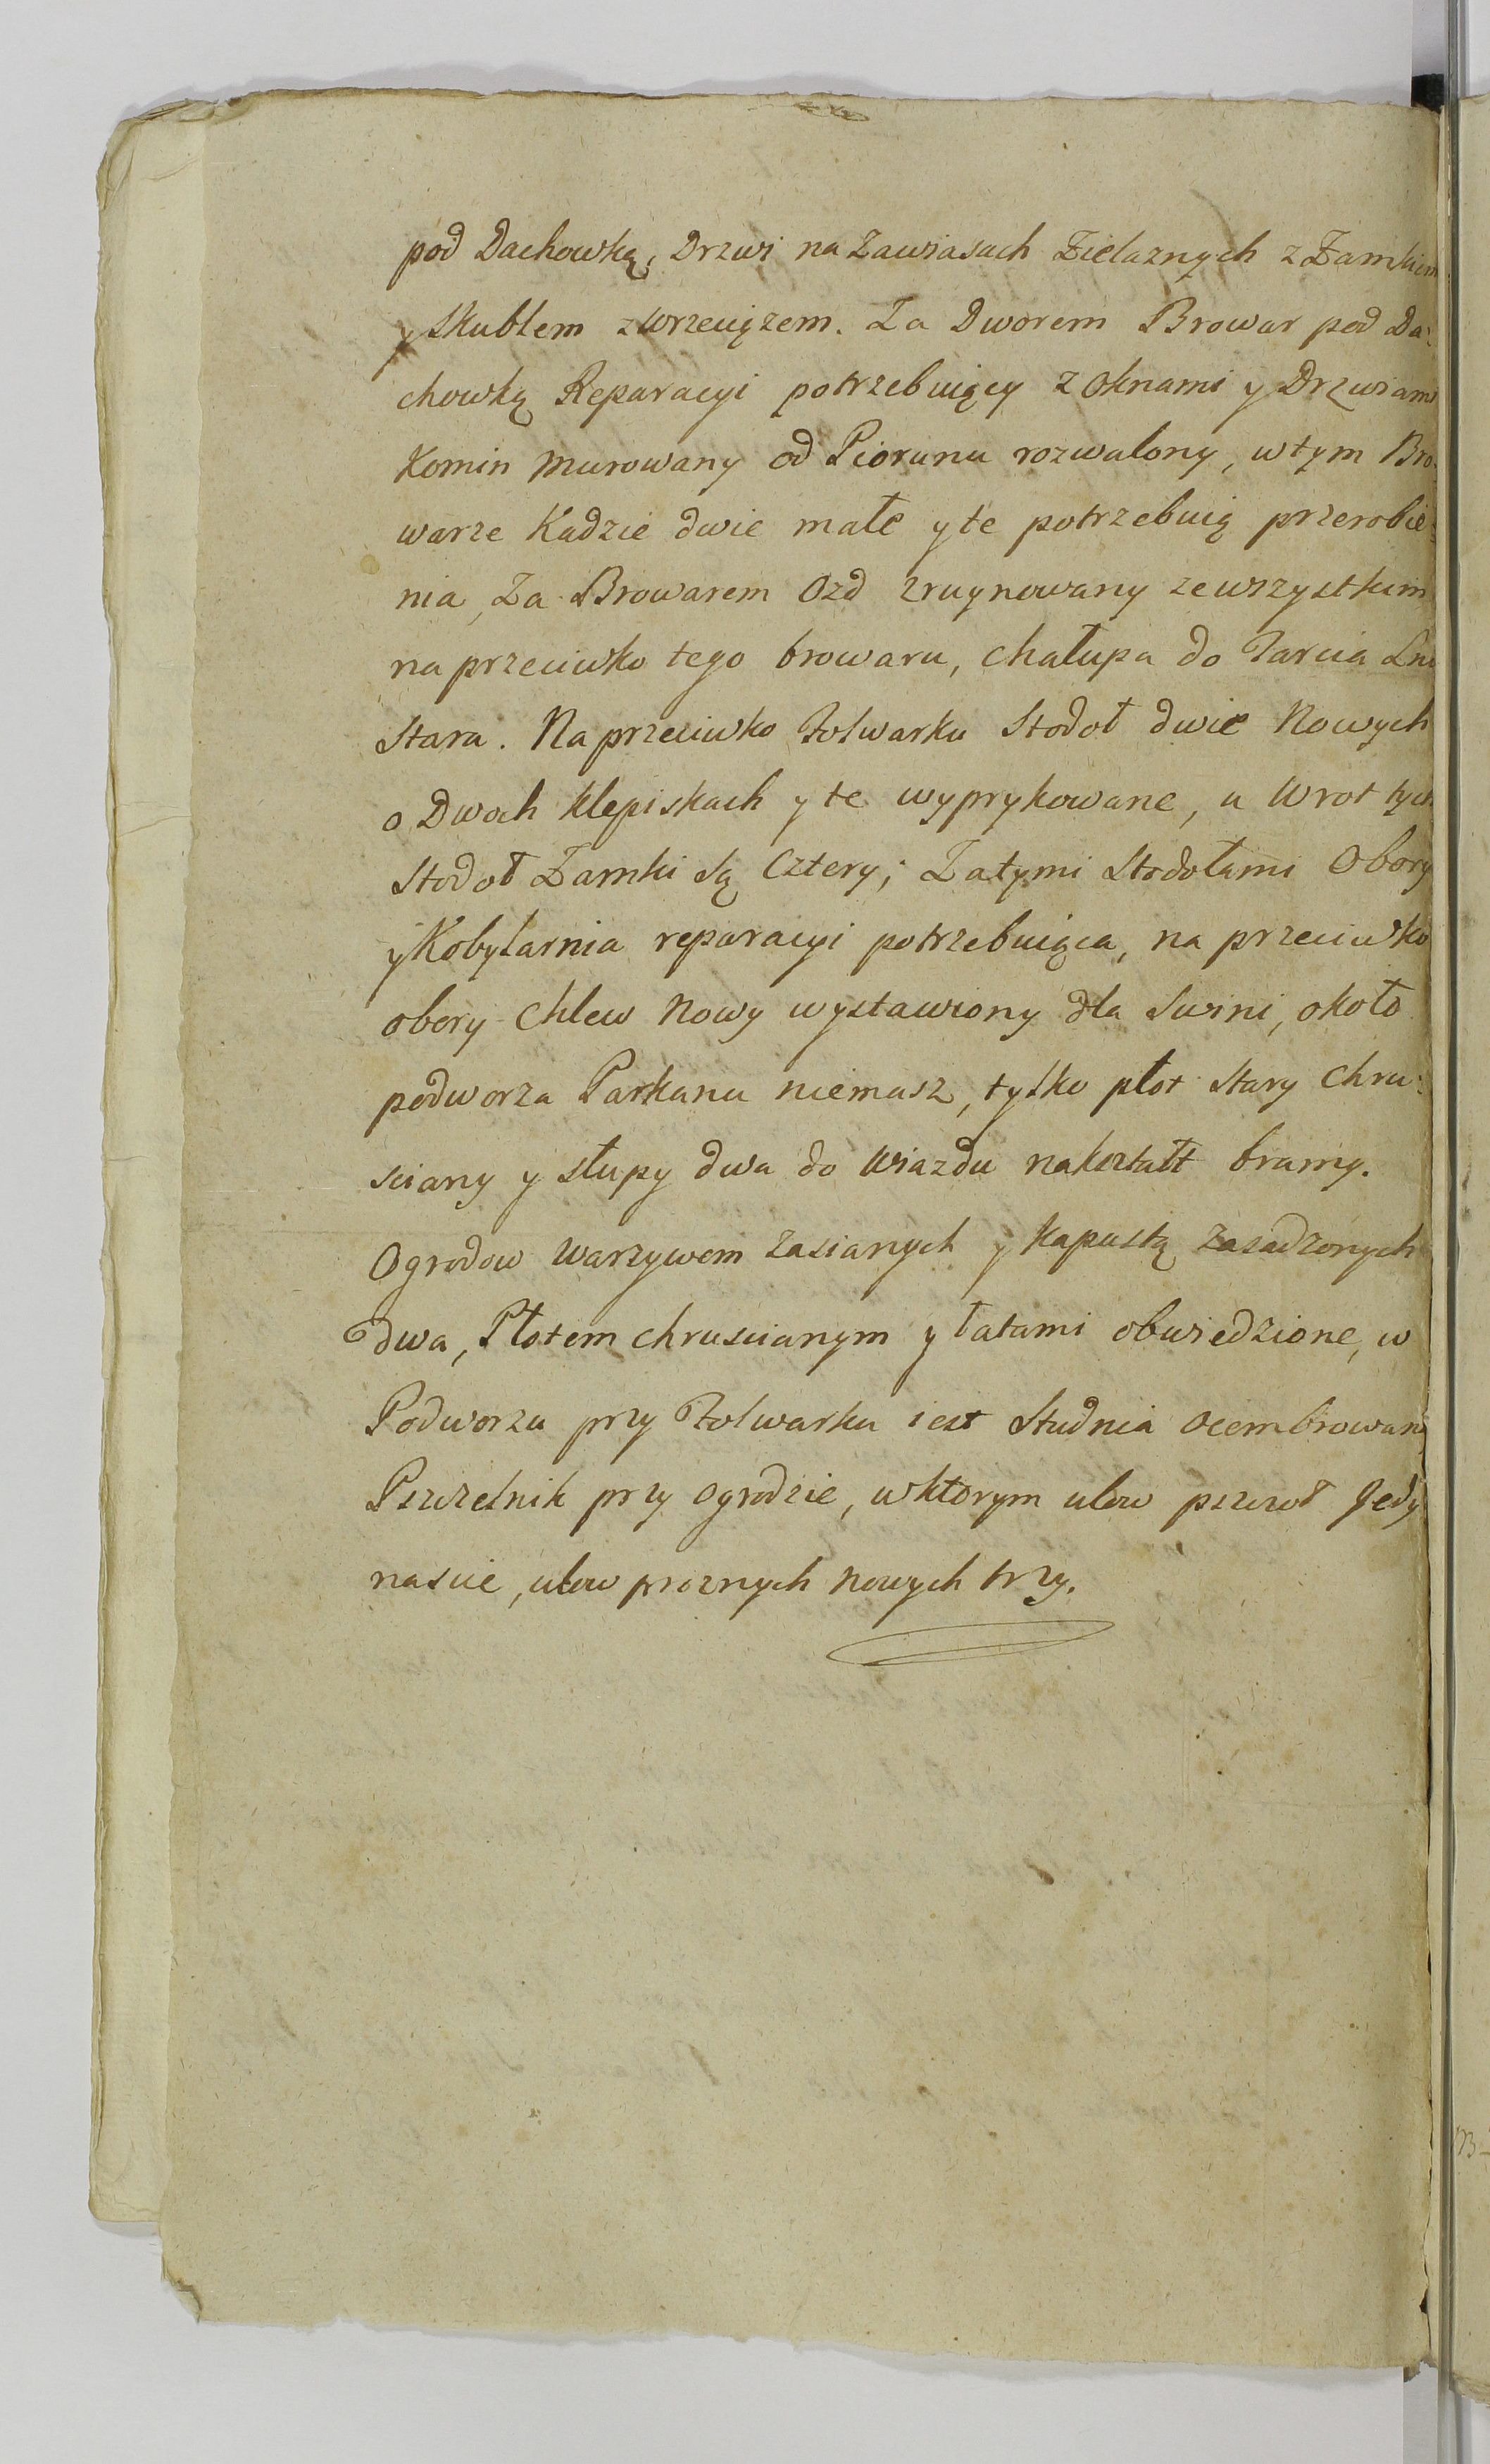 pod Dachowką, Drzwi na Zawiasach Zielaznych z Zamkiem
y Skublem z wrzeciązem. Za Dworem Browar pod Da:
chowką Reparacyi potrzebuiący z oknami y Drzwiami
Komin murowany od Piorunu rozwalony, w tym Bro:
warze Kadzie dwie małe y te potrzebuią przerobie:
nia, Za Browarem Ozd zruynowany ze wszystkim
na przeciwko tego browaru, chałupa do Tarcia Lnu
Stara. Na przeciwko Folwarku Stodoł dwie Nowych
o Dwoch klepiskach y te wyprykowane, u Wrot tych
Stodoł Zamki są Cztery; Za tymi Stodołami Obory
y Kobylarnia reparacyi potrzebuiąca, na przeciwko
obory Chlew Nowy wystawiony dla Swini, około
podworza Parkanu niemasz, tylko płot Stary Chru:
sciany y słupy dwa do Wiazdu nakształt bramy.
Ogrodow warzywem Zasianych y Kapustą Zasadzonych
dwa, Płotem chruscianym y łatami obwiedzione, w
Podworzu przy Folwarku iest Studnia ocembrowana
Pszczelnik przy ogrodzie, w ktorym ulow pszczoł Jedy
nascie, ulow proznych Nowych trzy.